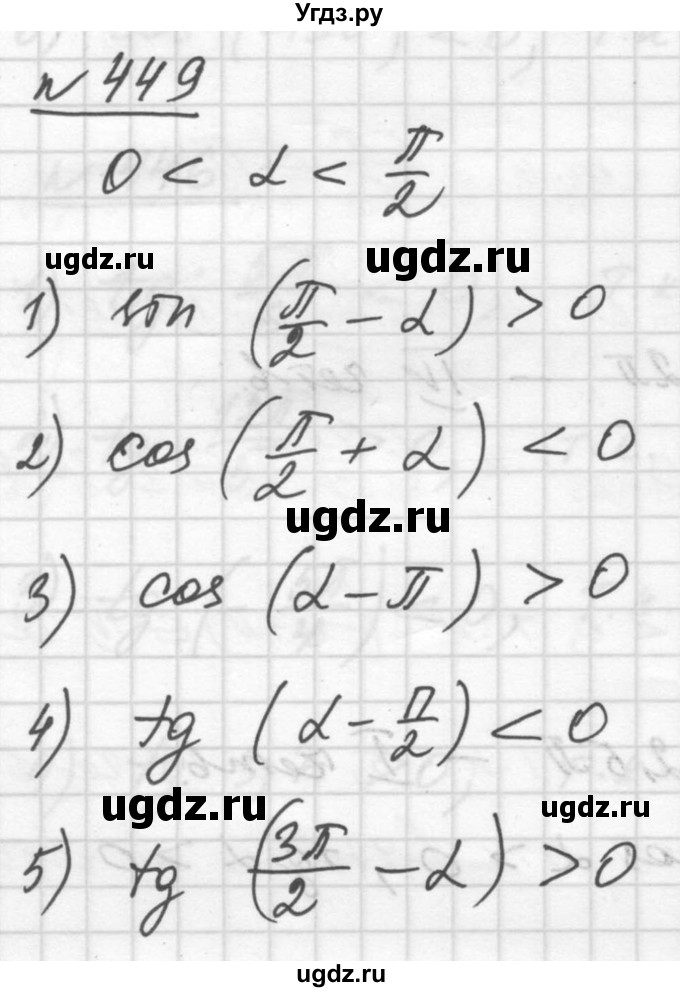 Угдз.ру
n 449
0 < α < π/2
ugdz.ru ugdz.ru
1) sin (π/2 - α) > 0
2) cos (π/2 + α) < 0
ugdz.ru
3) cos (α - π) > 0
4) tg (α - π/2) < 0
ugdz.ru ugdz.ru
5) tg (3π/2 - α) > 0
ugdz.ru